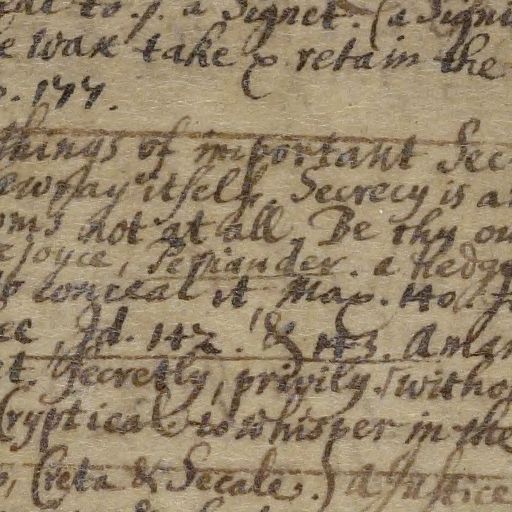 to. s. a Signet. (a Sign
wax take & retain the
p. 177.
things of important Sec
itself, Secrecy is a
not at all Be thy ow
joyce, Periander. a hedge
conceal it, Max. 140.
Id. 142. & 143. A man
Secretly, privily. witho
Cryptical. to whisper in the
(beta & Secale.) a Justice